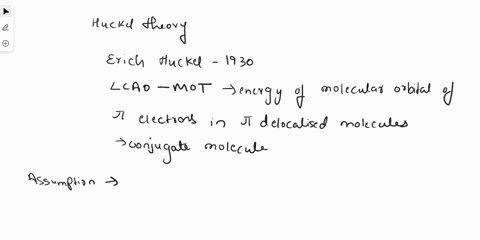 Huckel theory
Erich Huckel - 1930
LCAO - MOT → energy of molecular orbital of
π electrons in π delocalised molecules
→ conjugate molecule
Assumption →